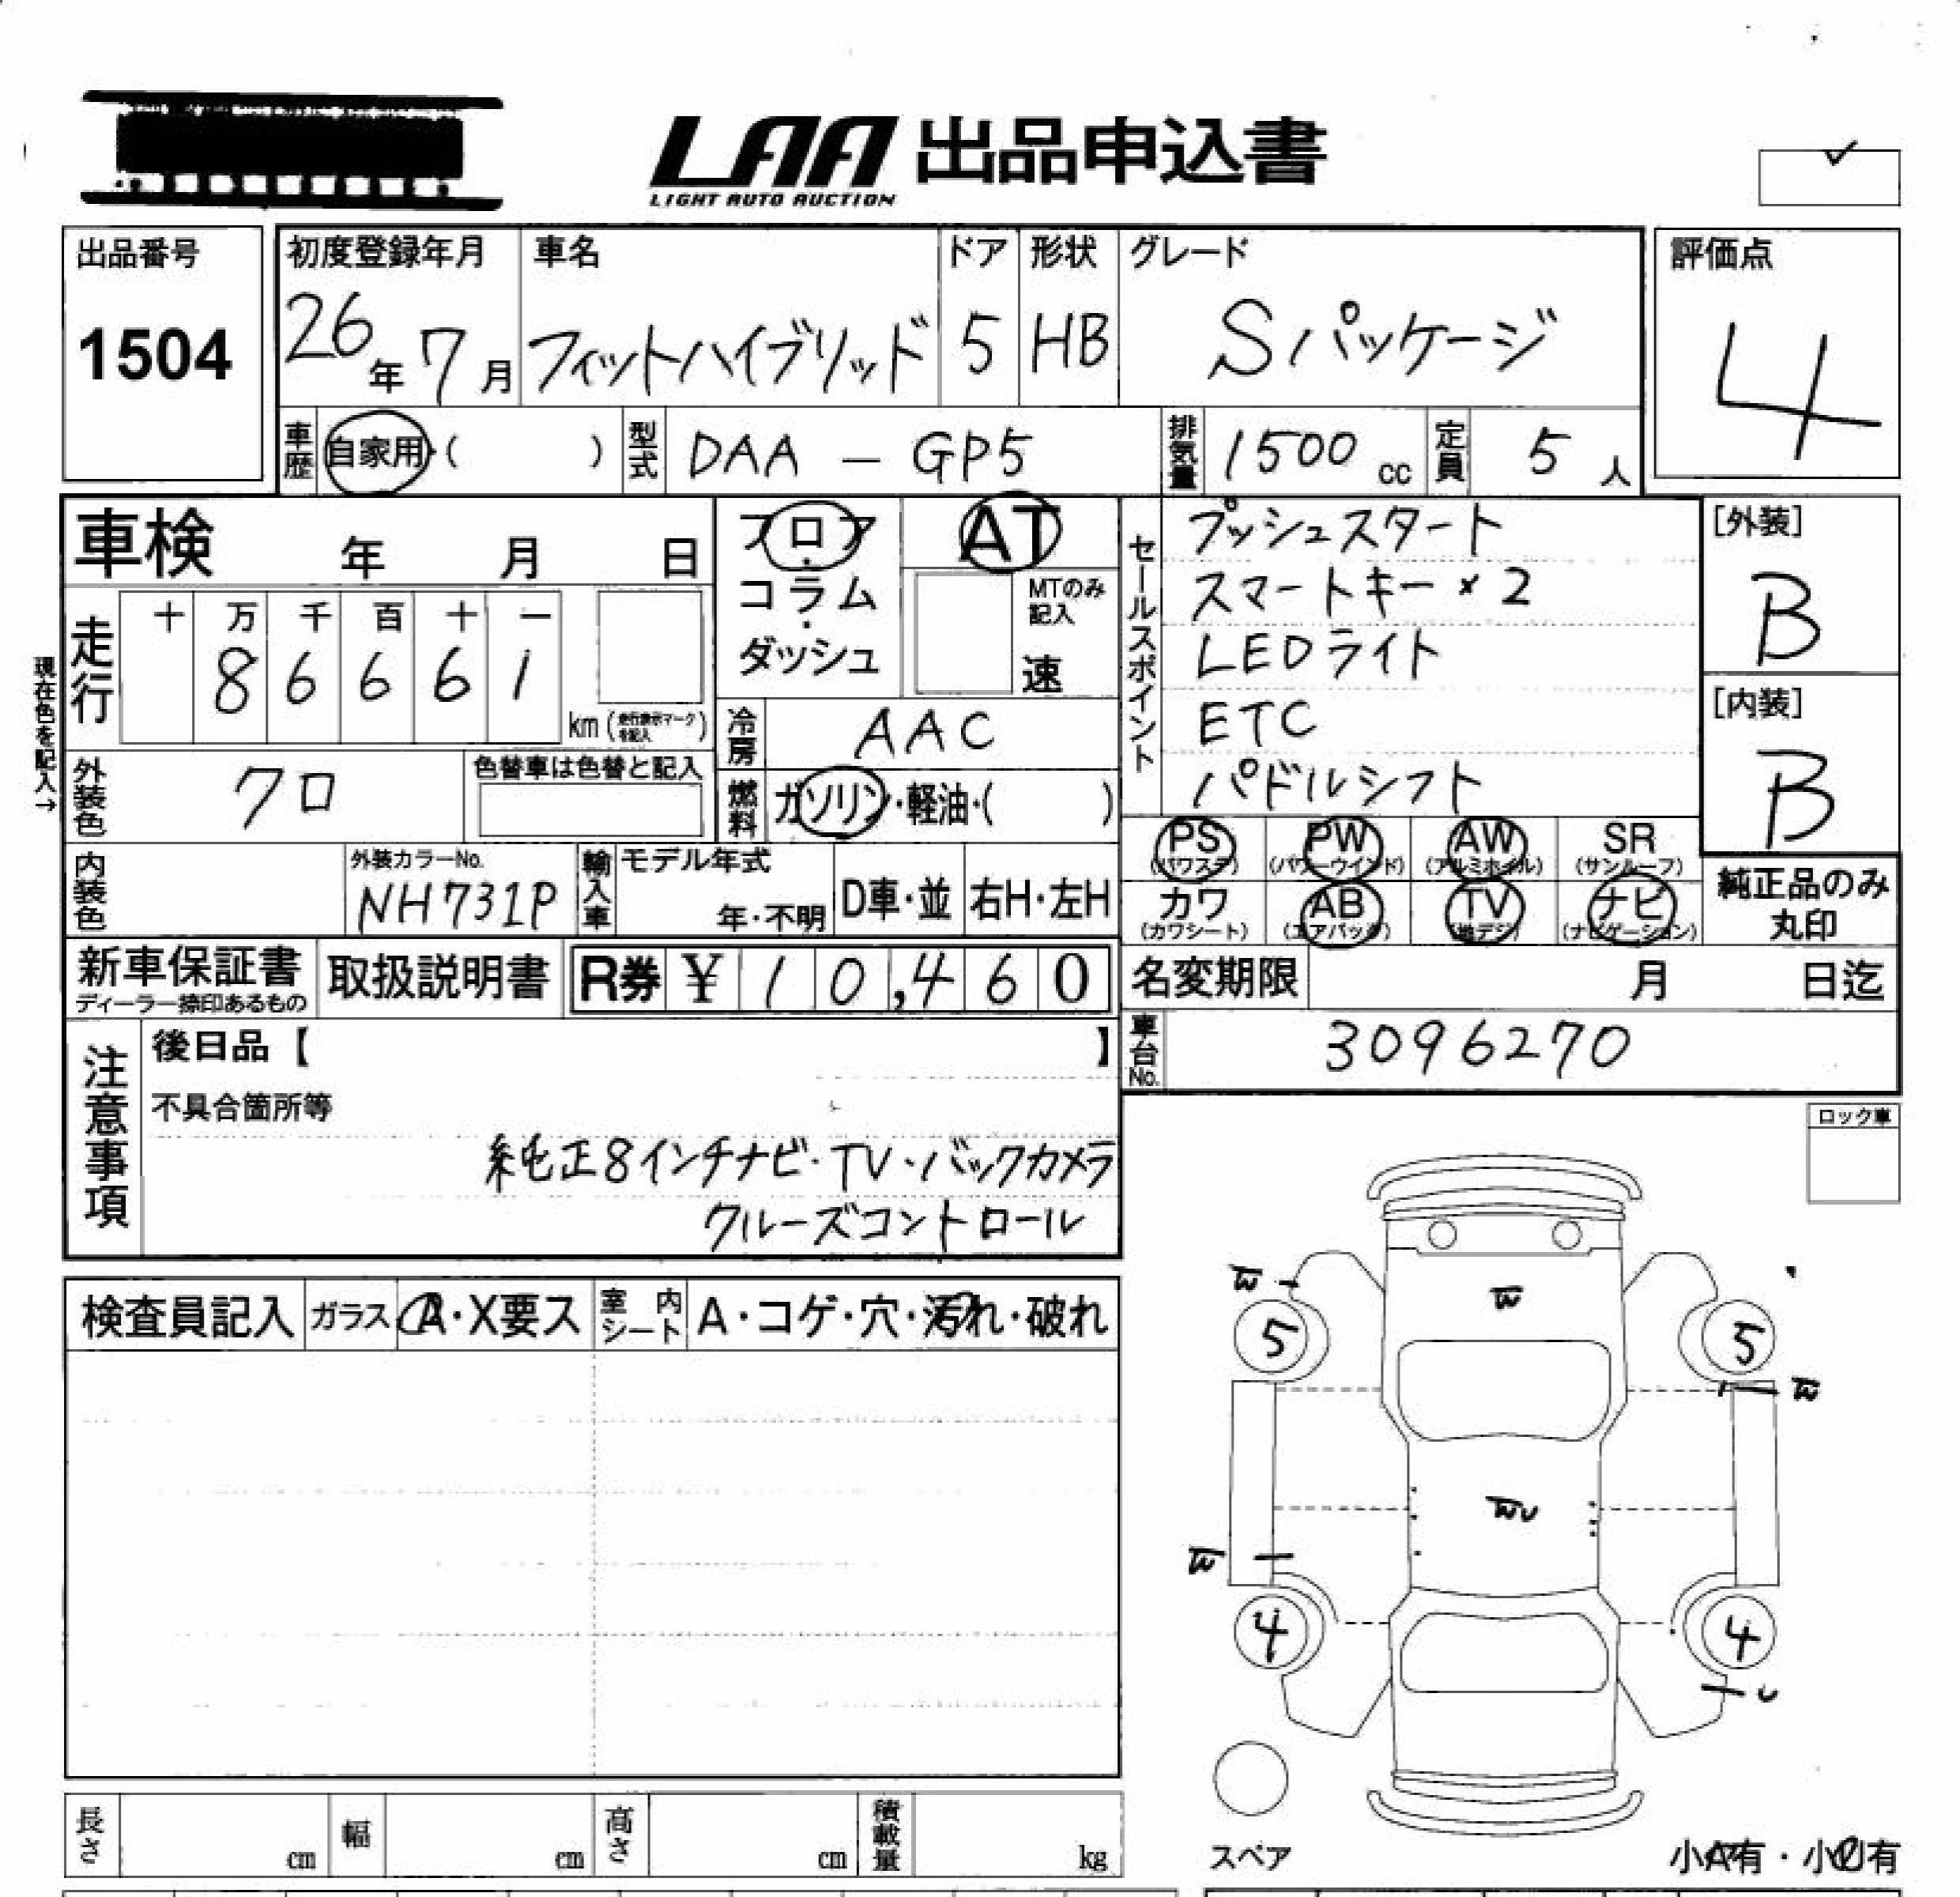 LAA 出品申込書
LIGHT AUTO AUCTION
出品番号
1504
初度登録年月
26年7月
車名
フィットハイブリッド
ドア
5
形状
HB
グレード
Sパッケージ
評価点
4
車歴 自家用・( )
型式 DAA-GP5
排気量 1500cc
定員 5人
車検 年 月 日
現在色を記入→
走行
十 万 千 百 十 一
8 6 6 6 1
km
フロア・コラム・ダッシュ
AT
MTのみ記入
速
冷房 AAC
燃料 ガソリン・軽油・( )
外装色 クロ
色替車は色替と記入
内装色
外装カラーNo.
NH731P
輸入車
モデル年式
年・不明
D車・並
右H・左H
セールスポイント
プッシュスタート
スマートキー×2
LEDライト
ETC
パドルシフト
[外装]
B
[内装]
B
PS (パワステ)
PW (パワーウインド)
AW (アルミホイル)
SR (サンルーフ)
カワ (カワシート)
AB (エアバッグ)
TV (地デジ)
ナビ (ナビゲーション)
純正品のみ
丸印
新車保証書
ディーラー捺印あるもの
取扱説明書
R券 ¥10,460
名変期限 月 日迄
車台No. 3096270
注意事項
後日品【 】
不具合箇所等
純正8インチナビ・TV・バックカメラ
クルーズコントロール
ロック車
検査員記入
ガラス A・X要ス
室内シート A・コゲ・穴・汚れ・破れ
W
W
5
5
W
WU
W
4
4
U
スペア
小A有・小U有
長さ cm
幅 cm
高さ cm
積載量 kg